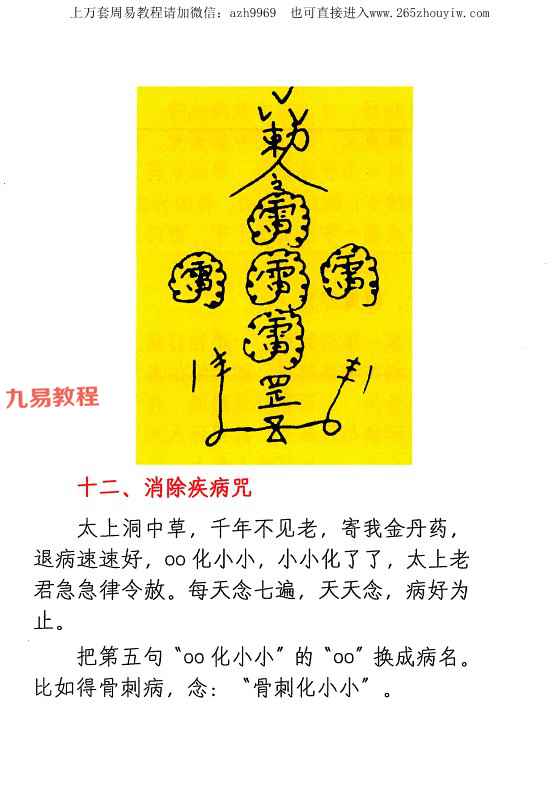 上万套周易教程请加微信：azh9969 也可直接进入www.265zhouyiw.com
敕
雷
雷 雷 雷
雷
罡
九易教程
十二、消除疾病咒
太上洞中草，千年不见老，寄我金丹药，
退病速速好，oo 化小小，小小化了了，太上老
君急急律令赦。每天念七遍，天天念，病好为
止。
把第五句“oo 化小小”的“oo”换成病名。
比如得骨刺病，念：“骨刺化小小”。